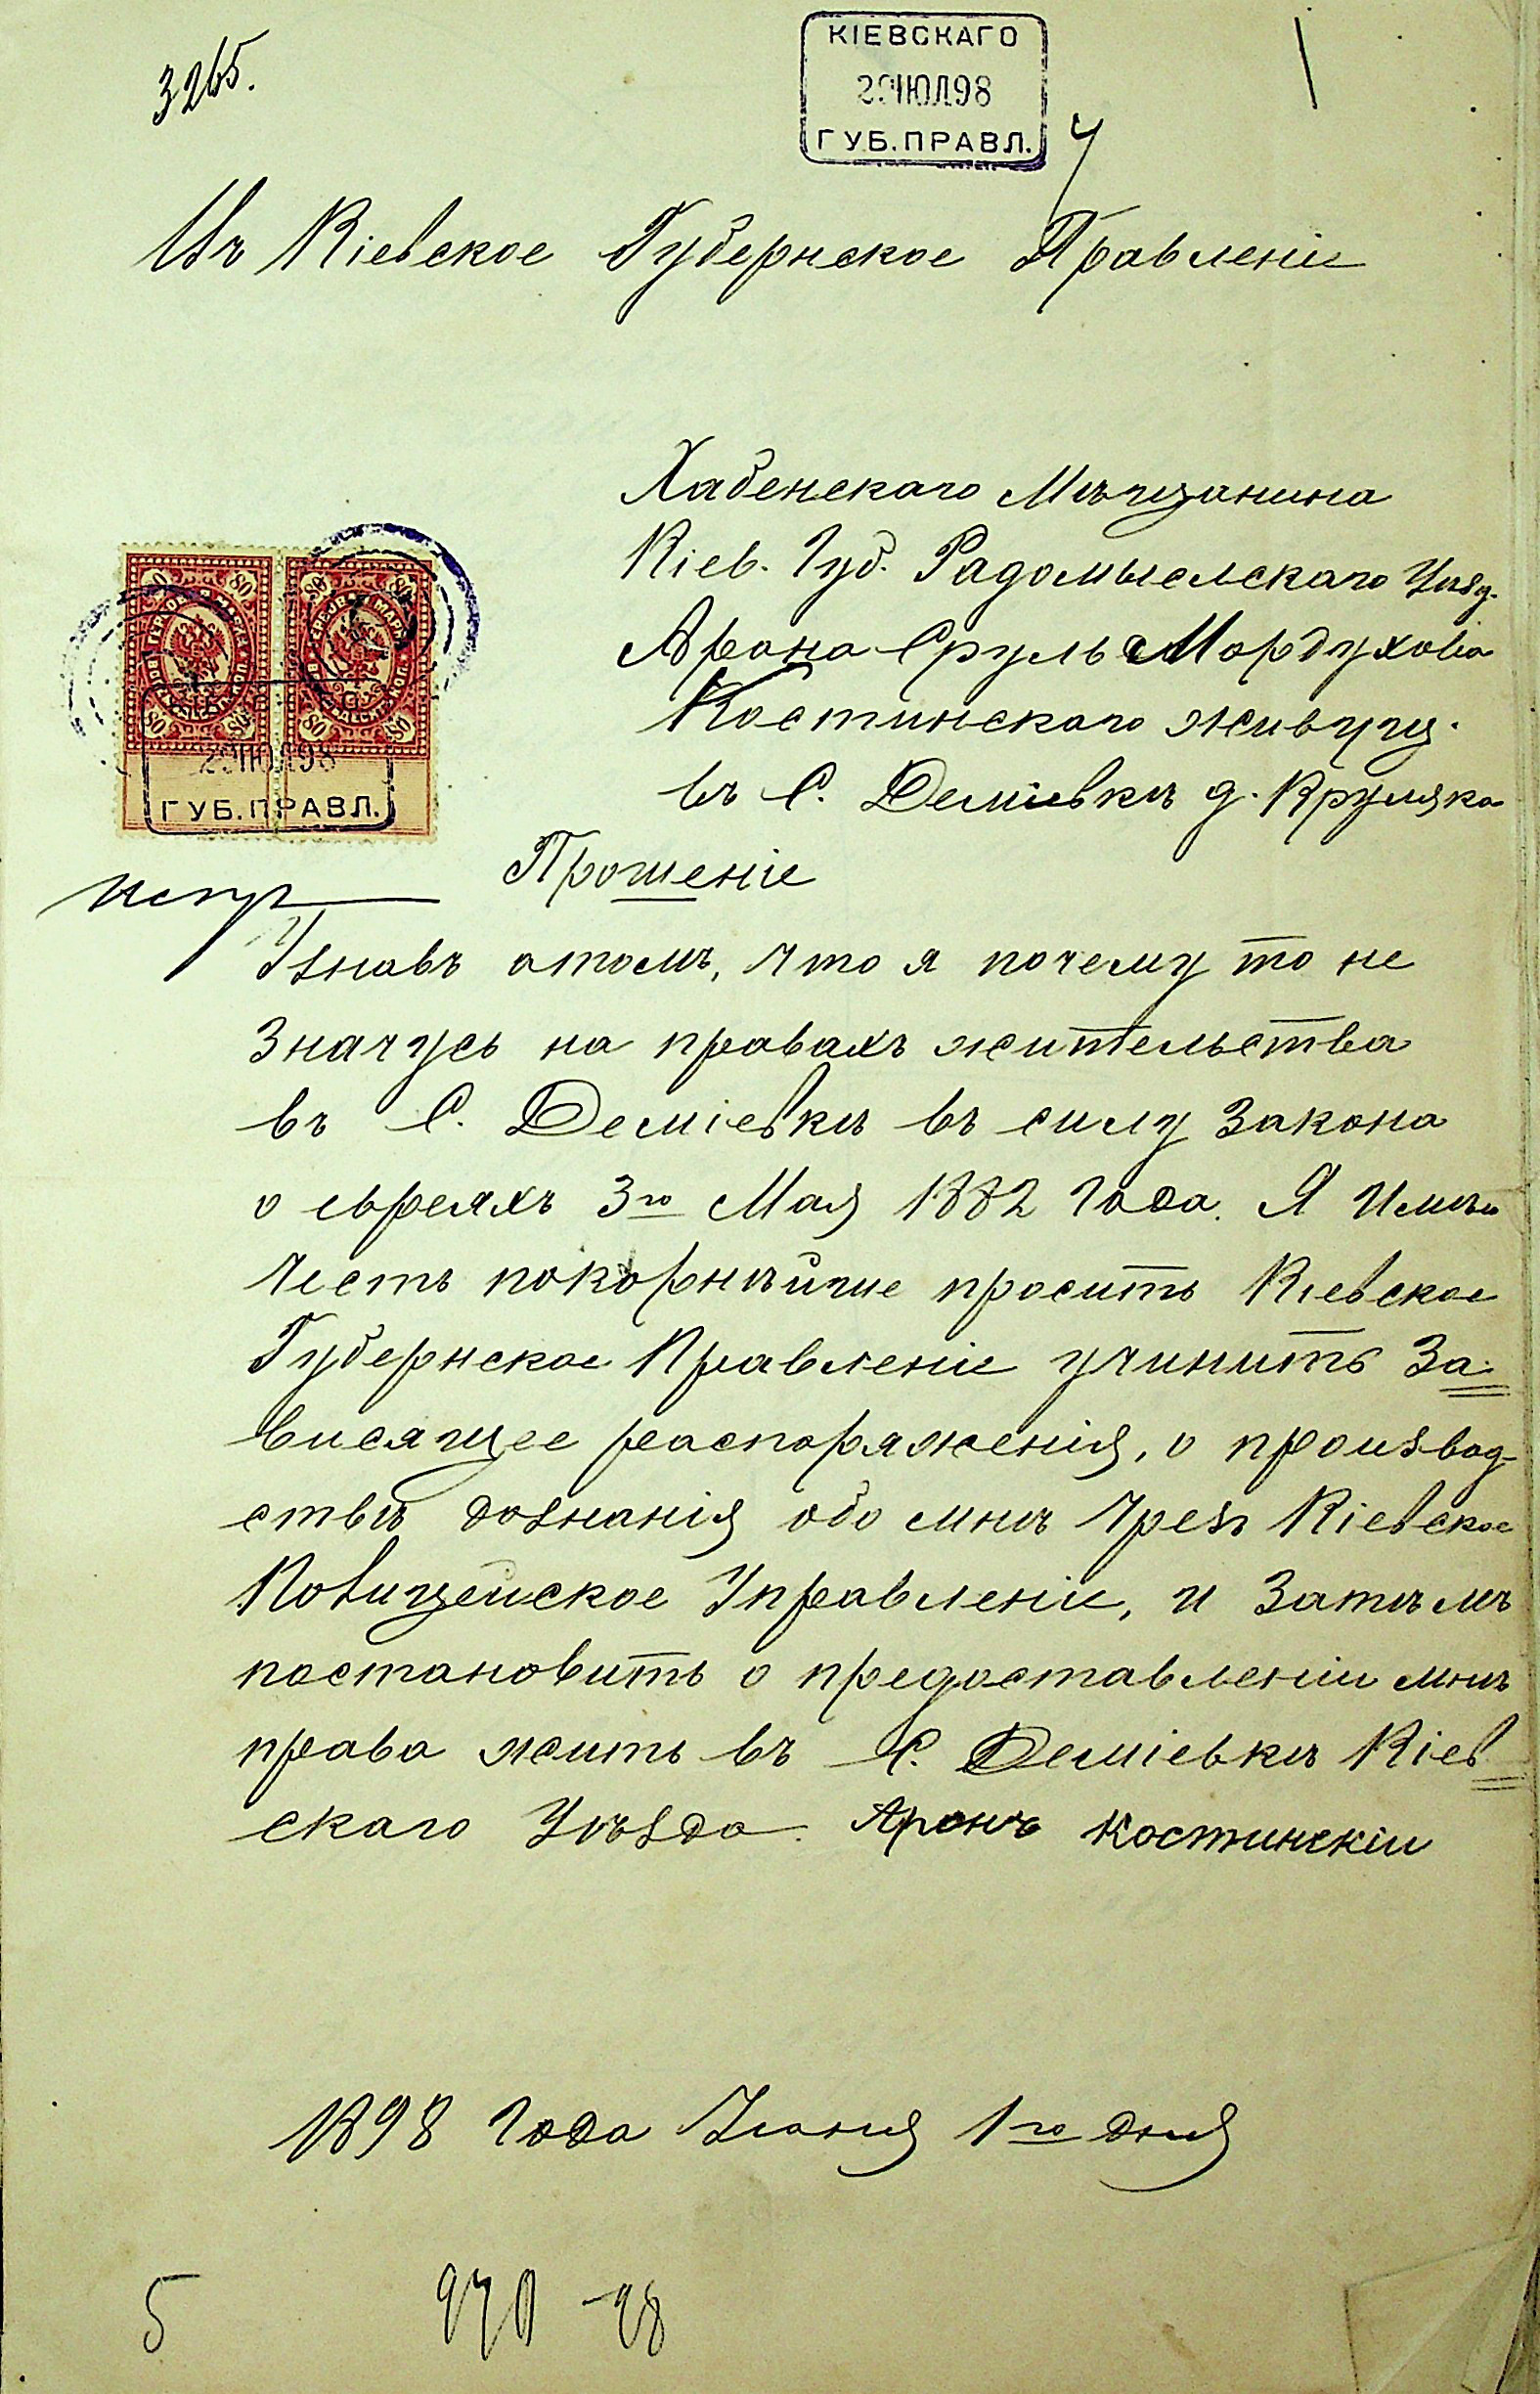 3265.
КІЕВСКАГО
29 ІЮЛ 98
ГУБ. ПРАВЛ.
Въ Кіевское Губернское Правленіе
Хабенскаго Мѣщанина
Кіев. Губ. Радомысмлскаго Уѣзд.
Арона Сруль Мордухова
Костинскаго живущ.
въ С. Деміевкѣ д. Круляка
80 80 80 80
29 ІЮЛ 98
ГУБ. ПРАВЛ.
Прошеніе
Узнавъ отомъ, что я почему то не
значусь на правахъ жительства
въ С. Деміевкѣ въ силу закона
о евреяхъ 3го Мая 1882 года. Я Имѣю
честь покорнѣйше просить Кіевское
Губернское Правленіе учинить За-
висящее распоряженія, о производ-
ствѣ дознанія обо мнѣ чрезъ Кіевское
Полицейское Управленіе, и Затѣмъ
постановить о предоставленіи мнѣ
права жить въ С. Деміевкѣ Кіев-
скаго Уѣзда. Аронъ Костинскіи
1898 года Іюня 1го дня
5